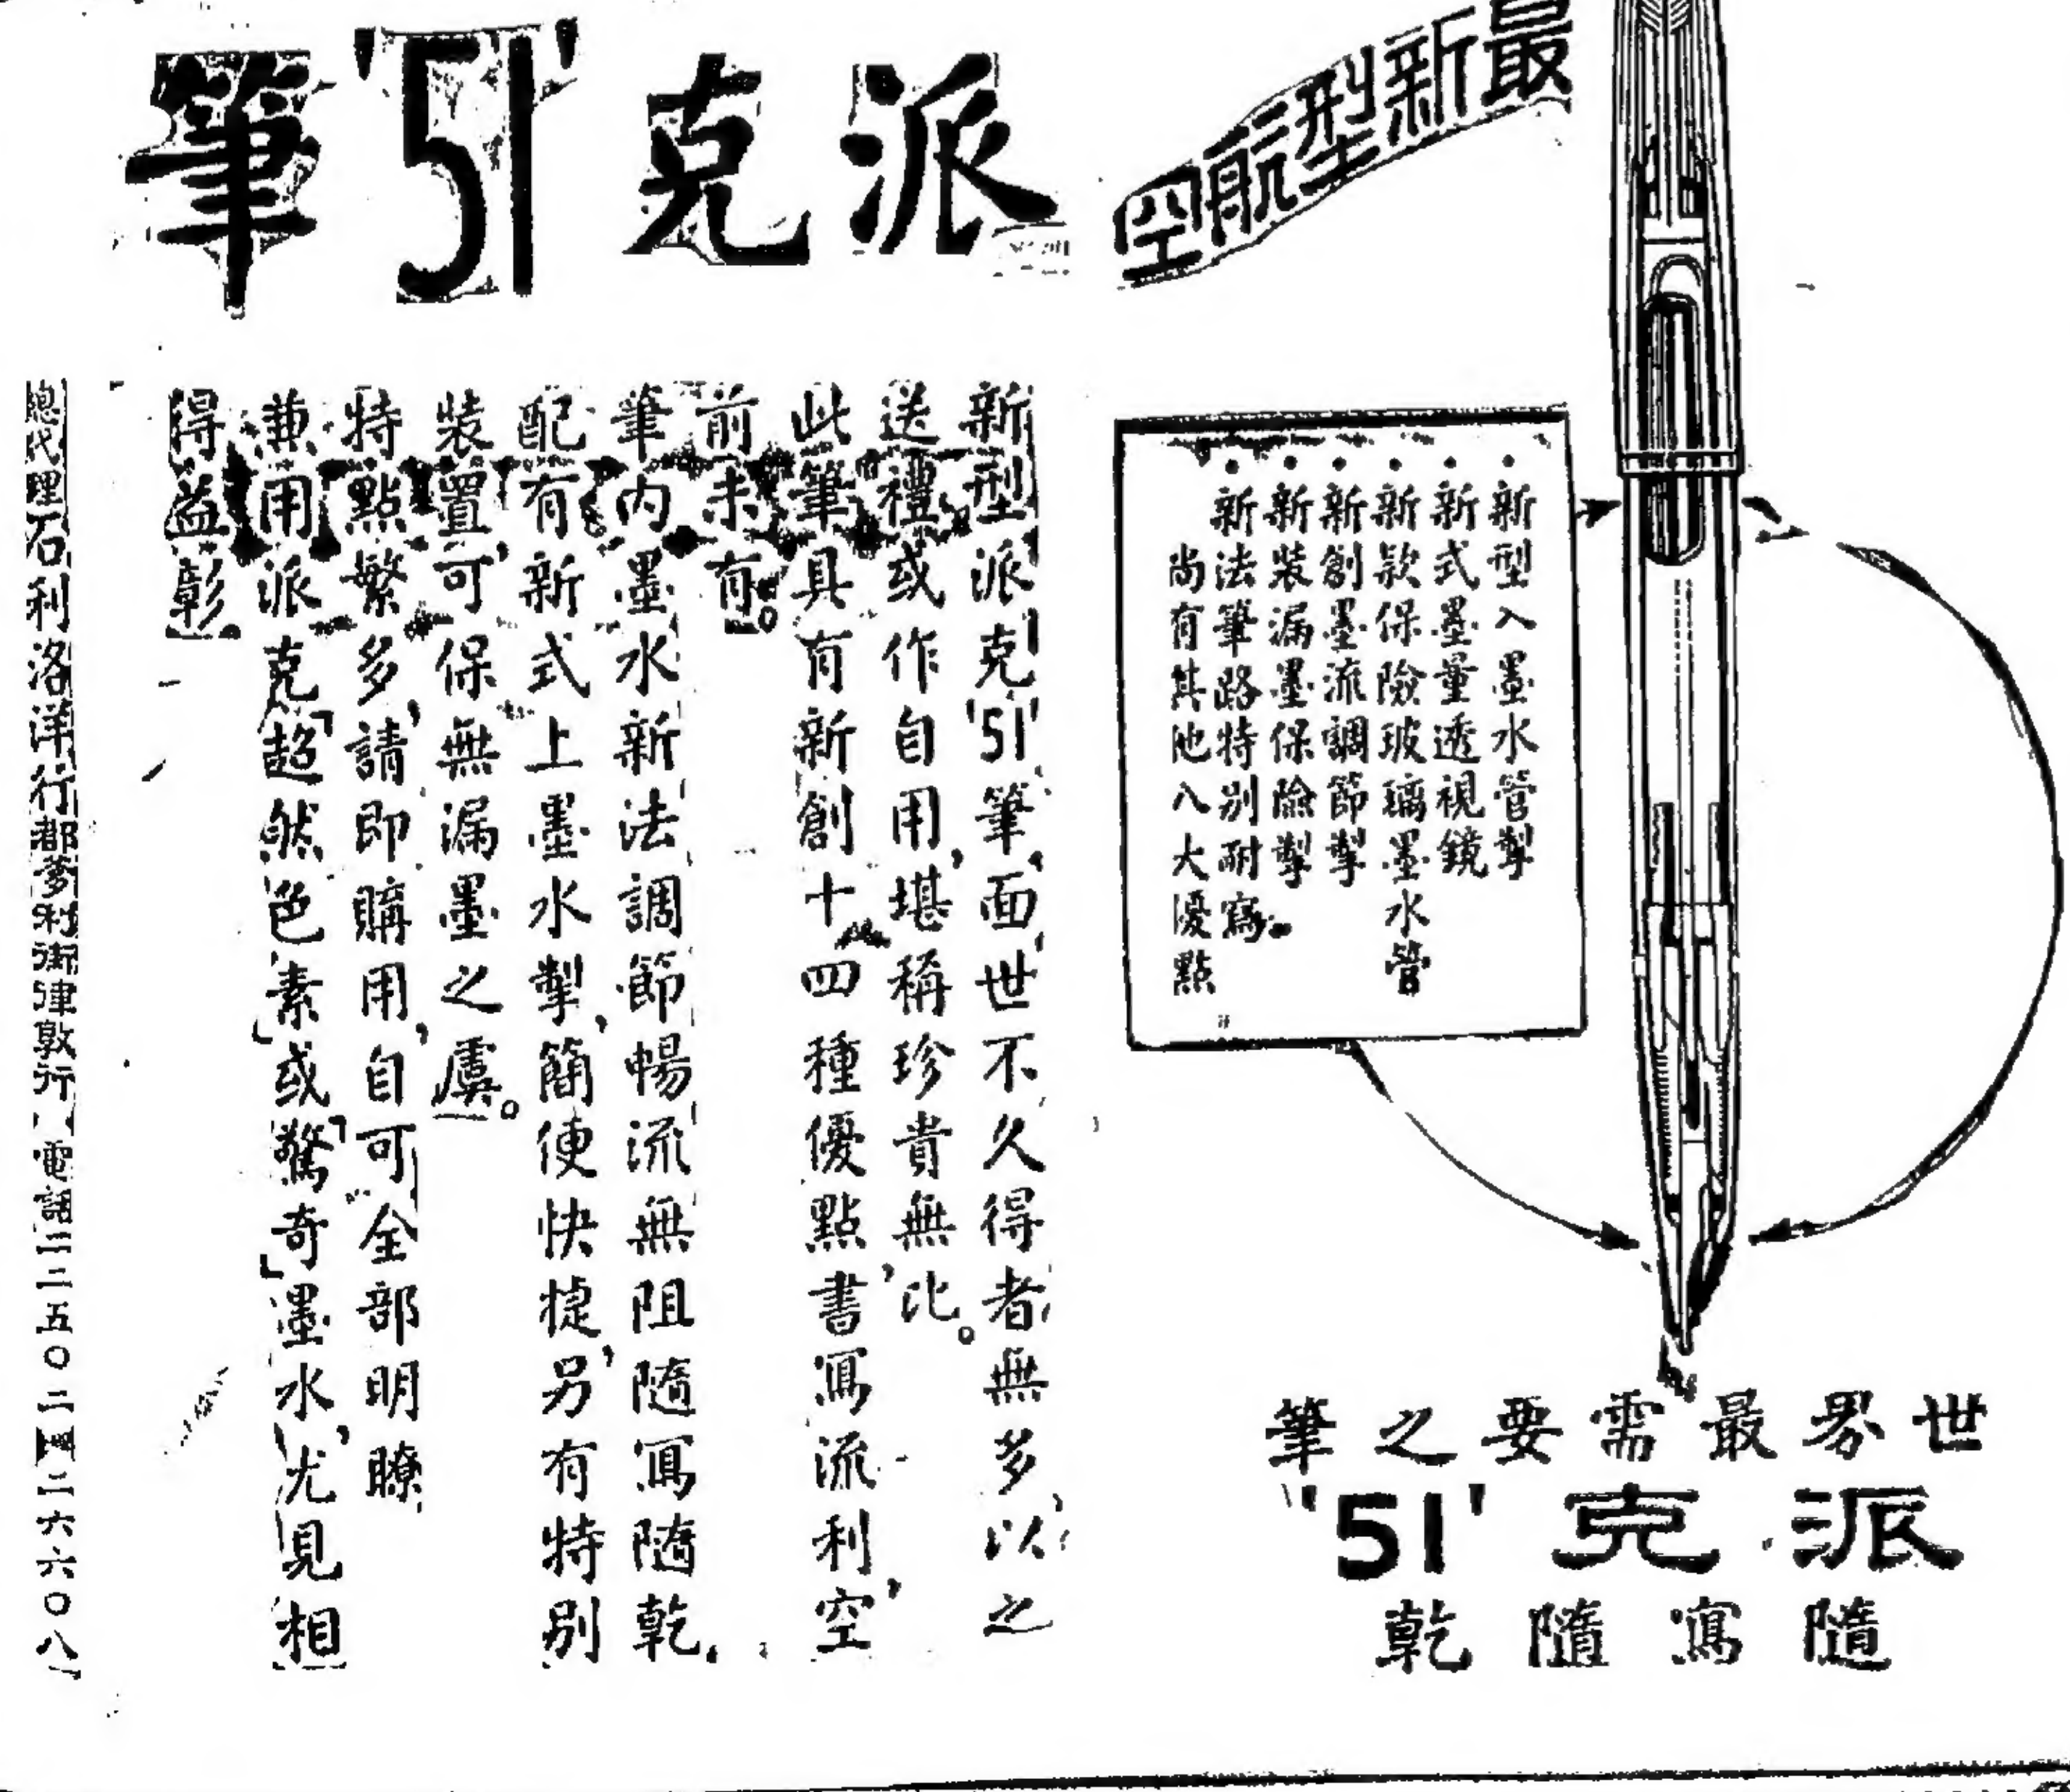 最新型航空
派克'51'筆
新型入墨水管掣
新式墨量透視鏡
新款保險玻璃墨水管
新創墨流調節掣
新裝漏墨保險掣
新法筆路特別耐寫。
尚有其他八大優點
新型派克'51'筆,面世不久,得者無多,以之
送禮或作自用,堪稱珍貴無比。
此筆具有新創十四種優點,書寫流利,空
前未有。
筆內墨水新法調節暢流無阻隨寫隨乾.
配有新式上墨水掣,簡便快捷,另有特別
裝置,可保無漏墨之虞。
特點繁多,請即購用,自可全部明瞭
兼用派克「超然色素」或「驚奇」墨水,尤見相
得益彰
世界最需要之筆
派克'51'
隨寫隨乾
總代理石利洛洋行都爹利街津敦行 電話三二五〇二 二六六〇八